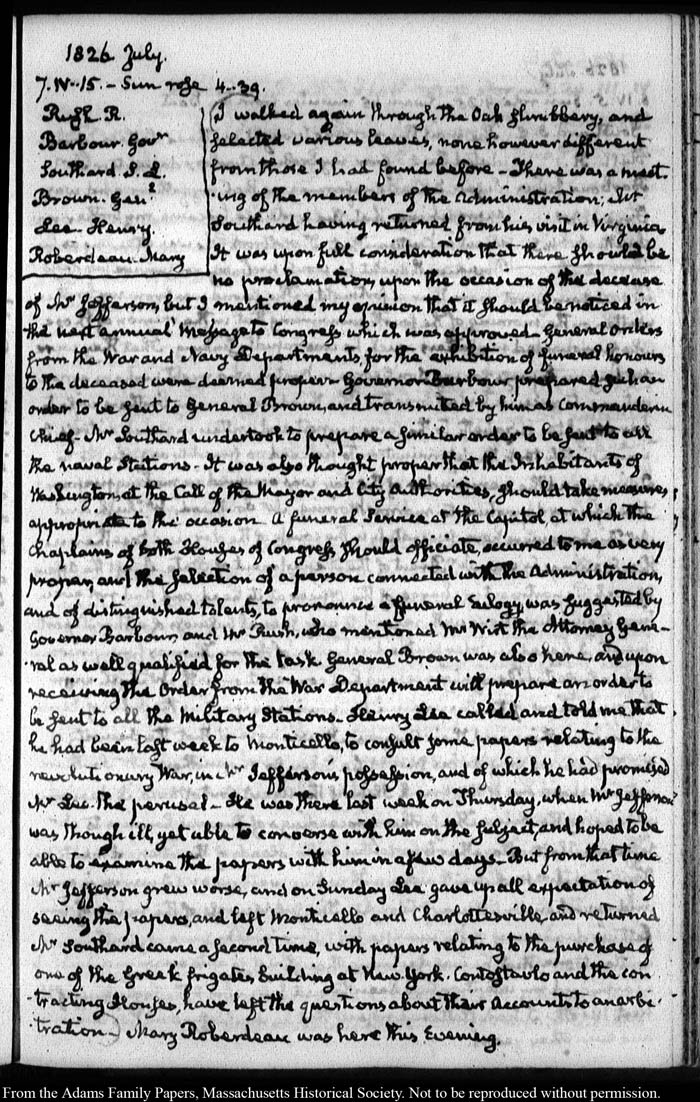 1826 July.
7. IV..15. - Sun rose 4..39.
Rush. R.
Barbour. Govr
Southard S. L.
Brown. Genl
Lee. Henry.
Roberdeau. Mary
I walked again through the Oak shrubbery, and
selected various leaves, none however different
from those I had found before - There was a meet-
-ing of the members of the Administration; Mr
Southard having returned from his visit in Virginia
It was upon full consideration that there should be
no proclamation, upon the occasion of the decease
of Mr Jefferson, but I mentioned my opinion that it should be noticed in
the next annual Message to Congress which was approved - General Orders
from the War and Navy Departments, for the exhibition of funeral honours
to the deceased were deemed proper. Governor Barbour prepared such an
order to be sent to General Brown, and transmitted by him as Commander in
Chief - Mr Southard undertook to prepare a similar order to be sent to all
the naval Stations. It was also thought proper that the Inhabitants of
Washington, at the Call of the Mayor and City Authorities, should take measures,
appropriate to the occasion. A funeral Service at the Capitol, at which the
Chaplains of both Houses of Congress should officiate, occurred to me as very
proper, and the selection of a person connected with the Administration,
and of distinguished talents, to pronounce a funeral Eulogy, was suggested by
Governor Barbour, and Mr Rush, who mentioned Mr Wirt the Attorney Gene-
-ral as well qualified for the task. General Brown was also here, and upon
receiving the Order from the War Department will prepare an order to
be sent to all the Military Stations - Henry Lee called and told me that
he had been last week to Monticello, to consult some papers relating to the
revolutionary War, in Mr Jefferson's possession, and of which he had promised
Mr Lee the perusal - He was there last week on Thursday, when Mr Jefferson
was though ill, yet able to converse with him on the subject, and hoped to be
able to examine the papers with him in a few days - But from that time
Mr Jefferson grew worse, and on Sunday Lee gave up all expectation of
seeing the papers, and left Monticello and Charlottesville, and returned
Mr Southard came a second time, with papers relating to the purchase of
one of the Greek frigates building at New-York. Contostavlo and the con-
-tracting Houses, have left the questions about their Accounts to an arbi-
-tration - Mary Roberdeau was here this Evening.
From the Adams Family Papers, Massachusetts Historical Society. Not to be reproduced without permission.